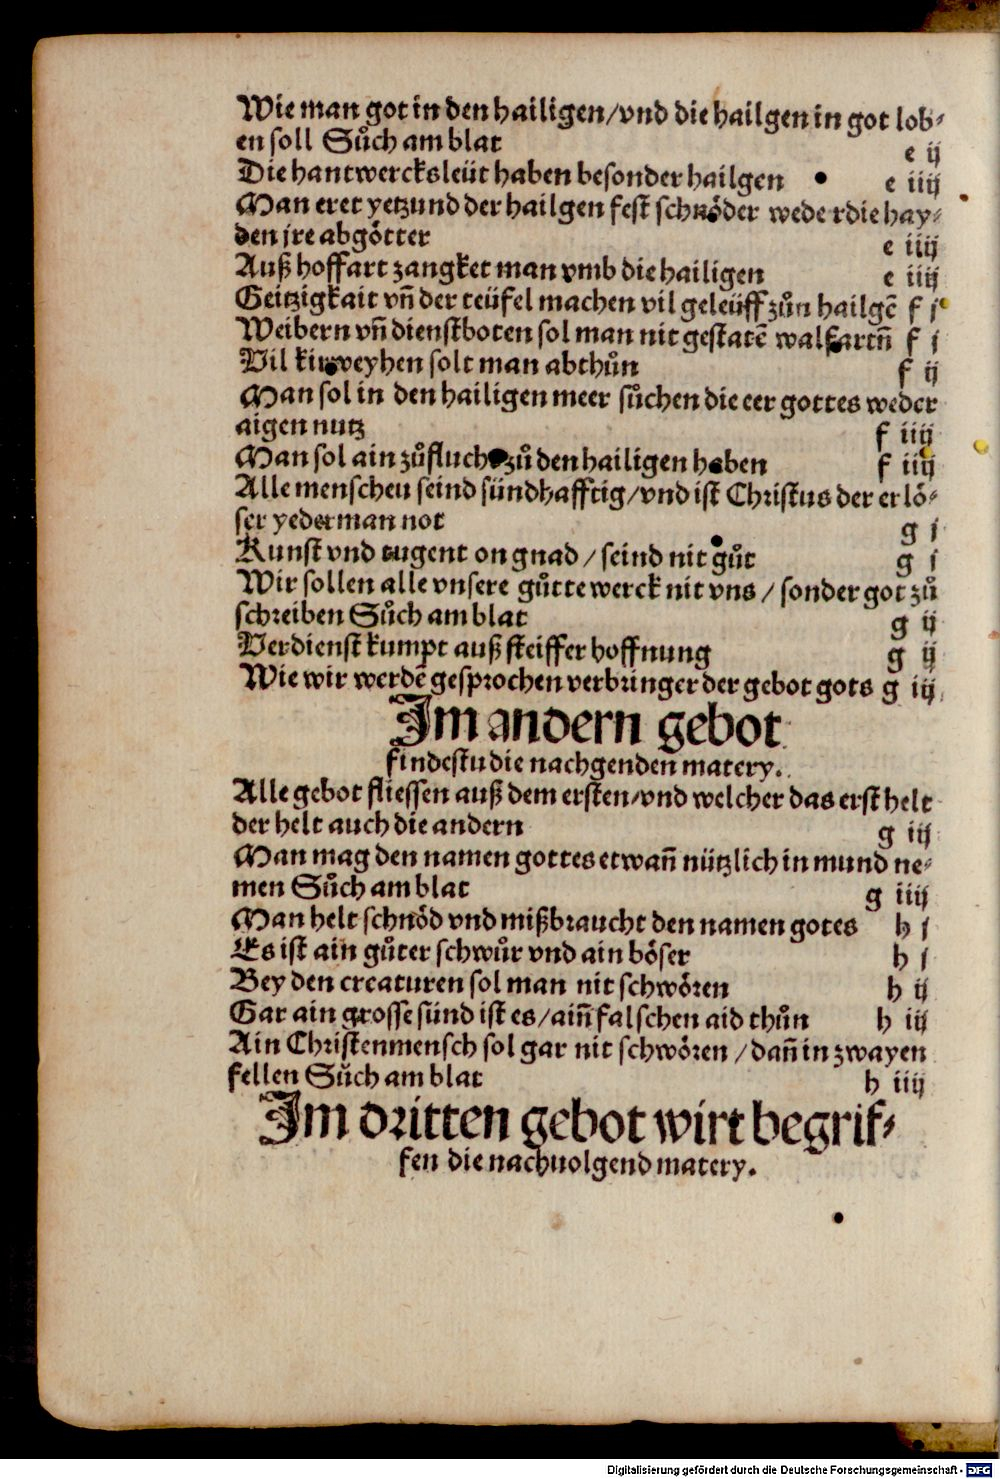 Wie man got in den hailigen/vnd die hailgen in got lob⸗
en soll Sůch am blat e ij
Die hantwercksleüt haben besonder hailgen e iiij
Man eret yetzund der hailgen fest schnöder wede rdie hay⸗
den jre abgötter e iiij
Auß hoffart zangket man vmb die hailigen e iiij
Geitzigkait vñ der teüfel machen vil geleüff zůn hailgē f j
Weibern vñ dienstboten sol man nit gestatē walfartñ f j
Vil kirweyhen solt man abthůn f ij
Man sol in den hailigen meer sůchen die eer gottes weder
aigen nutz f iiij
Man sol ain zůflucht zů den hailigen haben f iiij
Alle menschen seind sündhafftig/vnd ist Christus der erlö⸗
ser yederman not g j
Kunst vnd tugent on gnad/seind nit gůt g j
Wir sollen alle vnsere gůtte werck nit vns/sonder got zů
schreiben Sůch am blat g ij
Verdienst kumpt auß steiffer hoffnung g ij
Wie wir werdē gesprochen verbringer der gebot gots g iij
Im andern gebot
findestu die nachgenden matery.
Alle gebot fliessen auß dem ersten/vnd welcher das erst helt
der helt auch die andern g iij
Man mag den namen gottes etwañ nützlich in mund ne⸗
men Sůch am blat g iiij
Man helt schnöd vnd mißbraucht den namen gotes h j
Es ist ain gůter schwůr vnd ain böser h j
Bey den creaturen sol man nit schwören h ij
Gar ain grosse sünd ist es/aiñ falschen aid thůn h iij
Ain Christenmensch sol gar nit schwören/dañ in zwayen
fellen Sůch am blat h iiij
Im dritten gebot wirt begrif⸗
fen die nachuolgend matery.
Digitalisierung gefördert durch die Deutsche Forschungsgemeinschaft - DFG